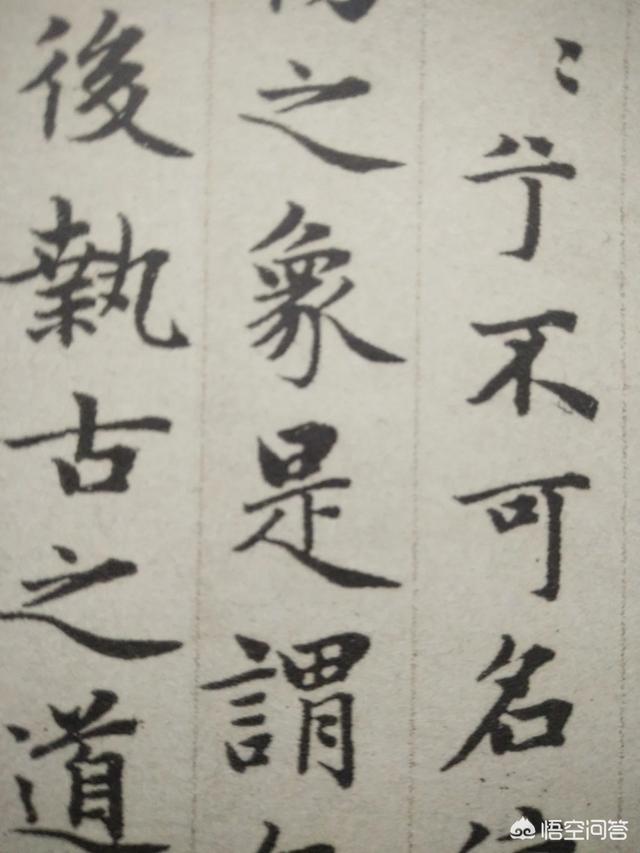 〻兮不可名
之象是謂
後執古之道
悟空问答